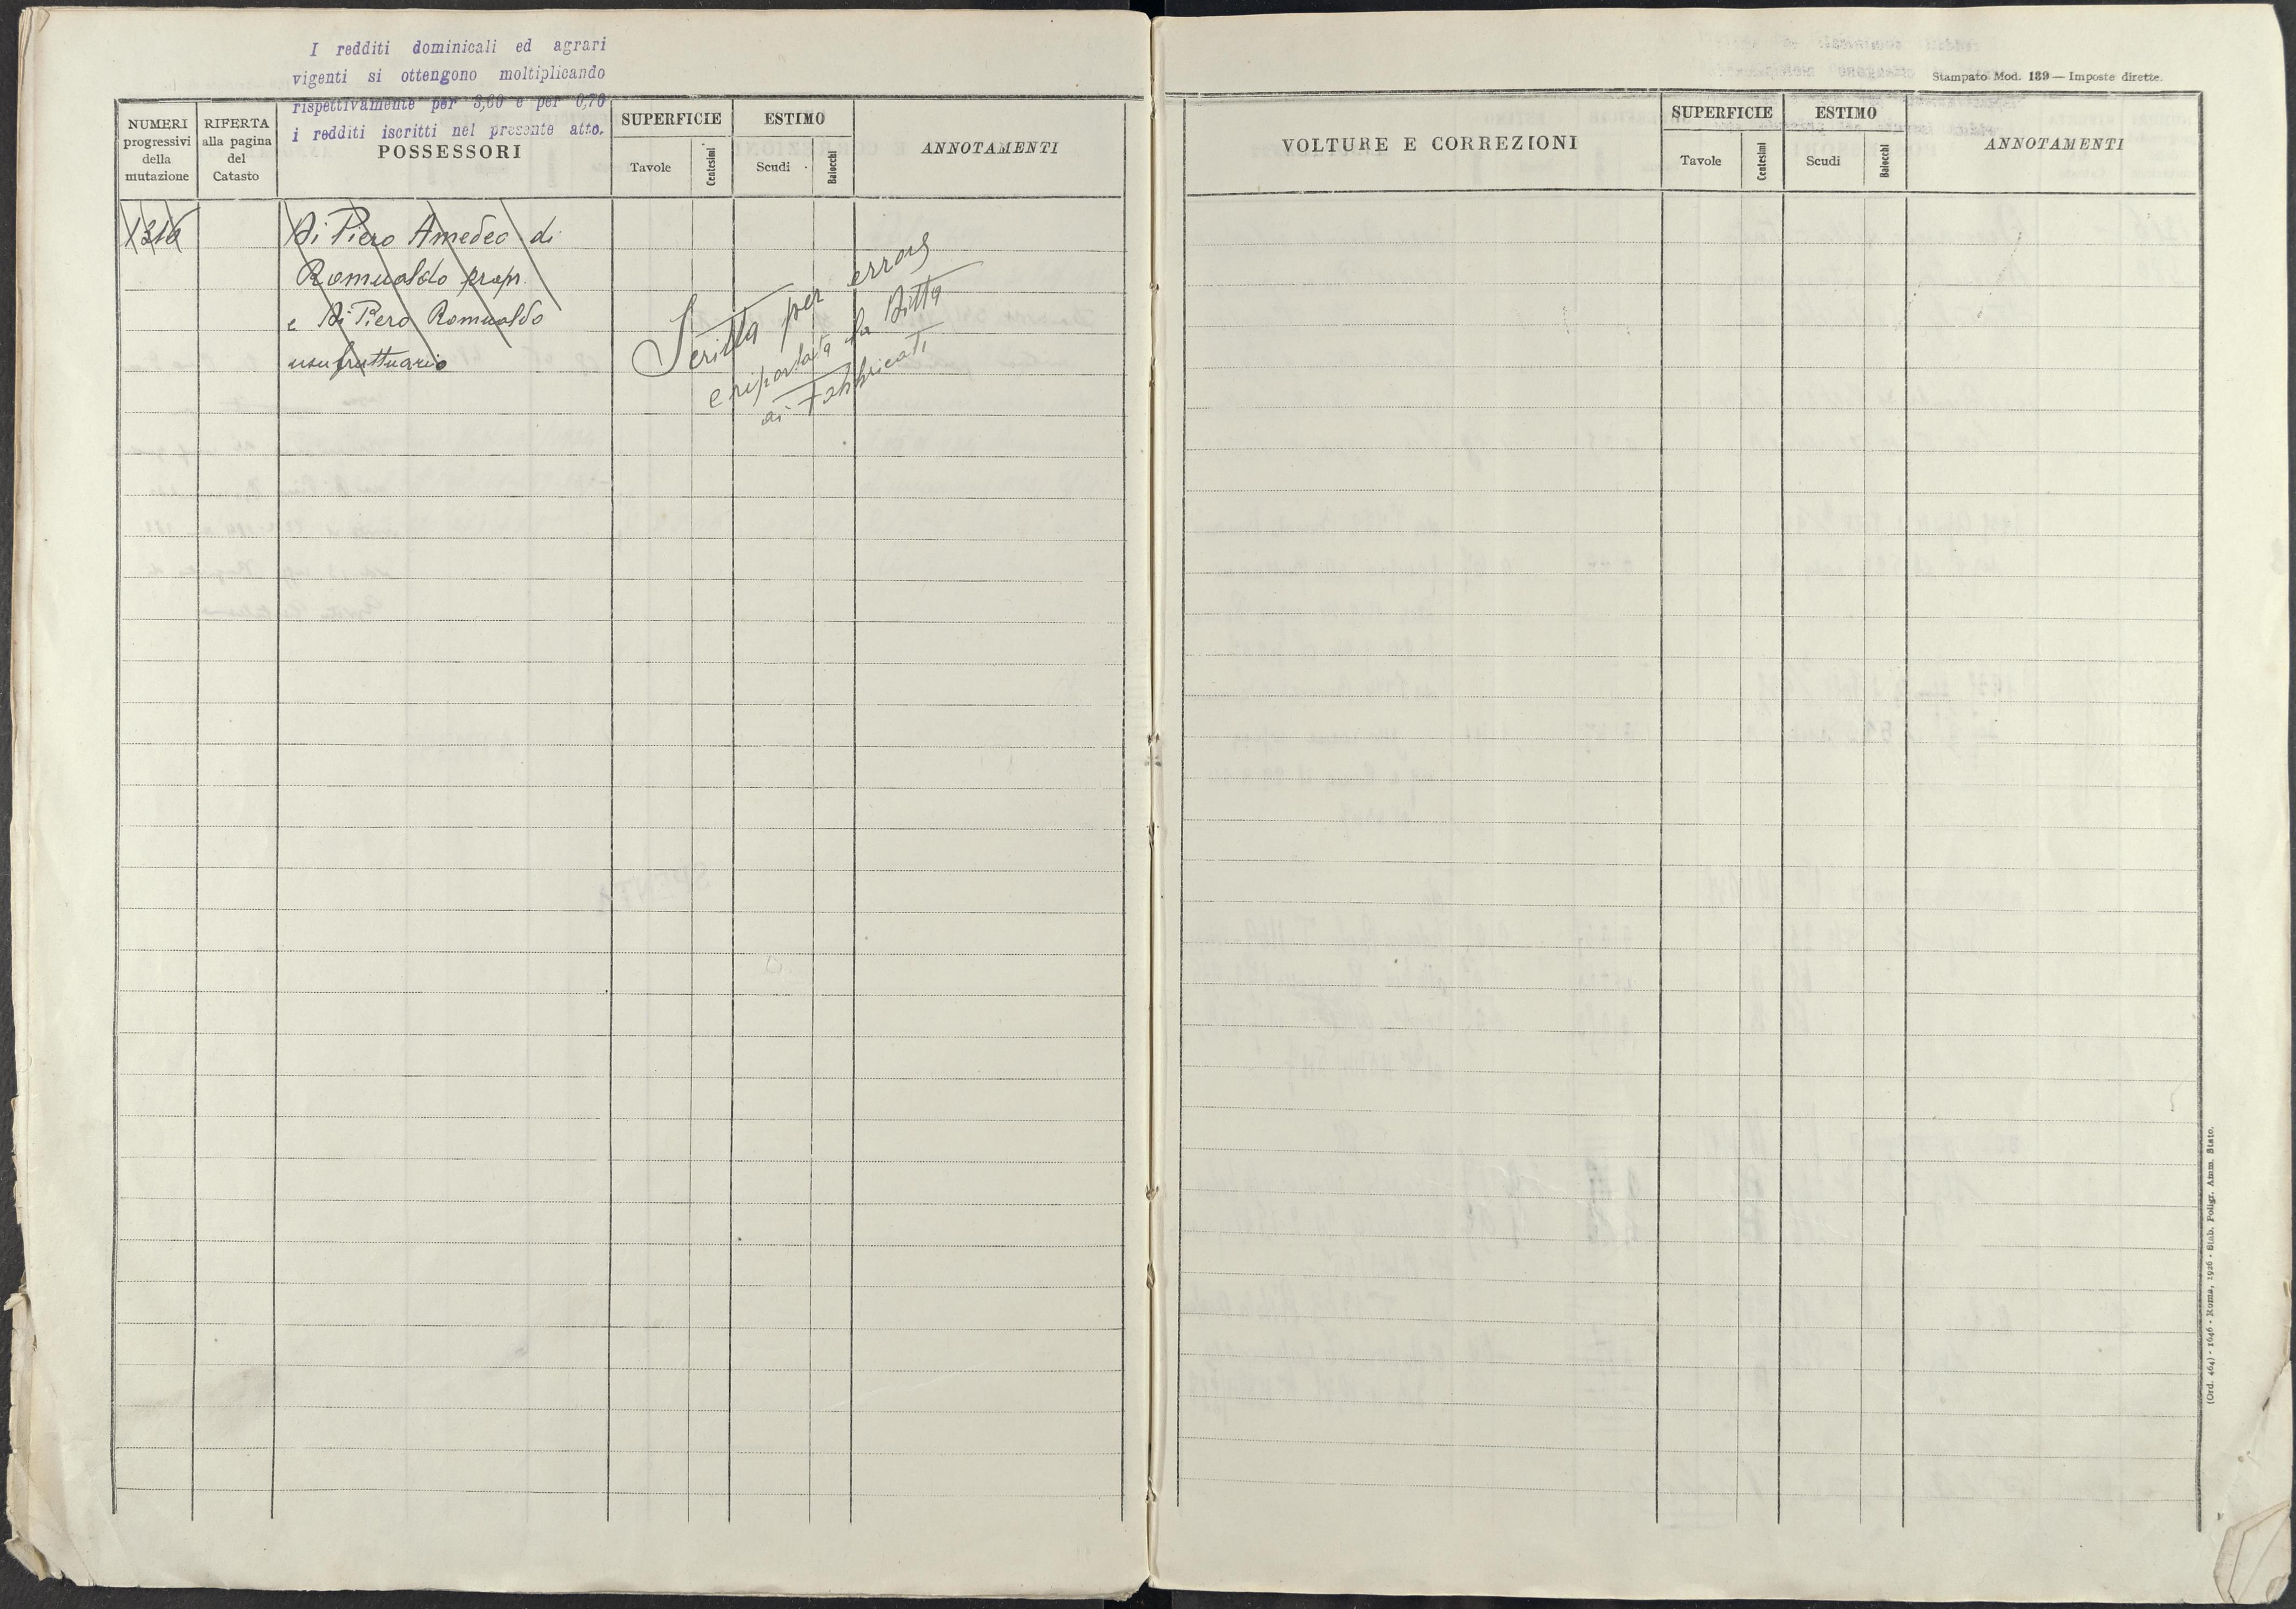 I redditi dominicali ed agrari
vigenti si ottengono moltiplicando
rispettivamente per 3,60 e per 0,70
i redditi iscritti nel presente atto.
NUMERI
progressivi
della
mutazione
RIFERTA
alla pagina
del
Catasto
POSSESSORI
SUPERFICIE
Tavole
Centesimi
ESTIMO
Scudi
Baiocchi
ANNOTAMENTI
1316
Di Piero Amedeo di
Romualdo propr.
e Di Piero Romualdo
usufruttuario
Scritta per errore
e riportata la Ditta
ai Fabbricati
Stampato Mod. 189 — Imposte dirette.
VOLTURE E CORREZIONI
SUPERFICIE
Tavole
Centesimi
ESTIMO
Scudi
Baiocchi
ANNOTAMENTI
(Ord. 464) - 1646 - Roma, 1926 - Stab. Poligr. Amm. Stato.